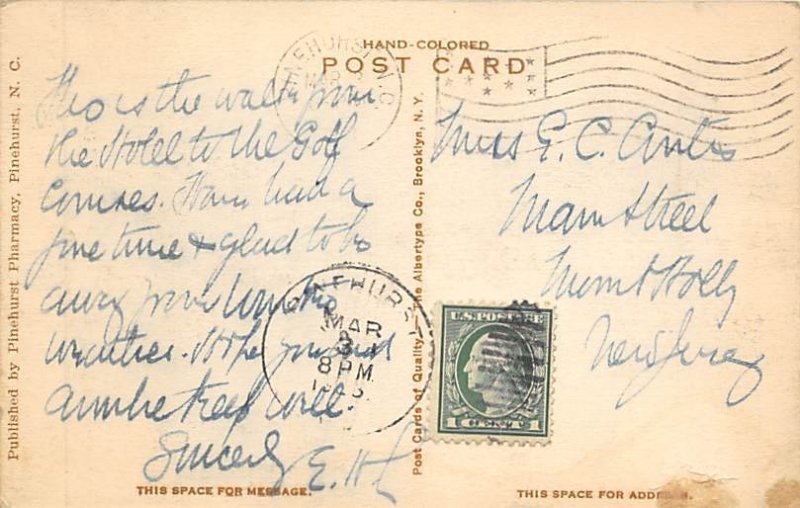 HAND-COLORED
POST CARD
Published by Pinehurst Pharmacy, Pinehurst, N. C.
This is the walk from
the Hotel to the Golf
Courses. Have had a
fine time & glad to be
away from
weather. Hope you and
keep well.
Sincerely E. H.
THIS SPACE FOR MESSAGE.
Post Cards of Quality. The Albertype Co., Brooklyn, N. Y.
PINEHURST
MAR
3
8 PM
U.S. POSTAGE
1 CENT 1
Miss E. C.
Main Street
Mount Holly
New Jersey
THIS SPACE FOR